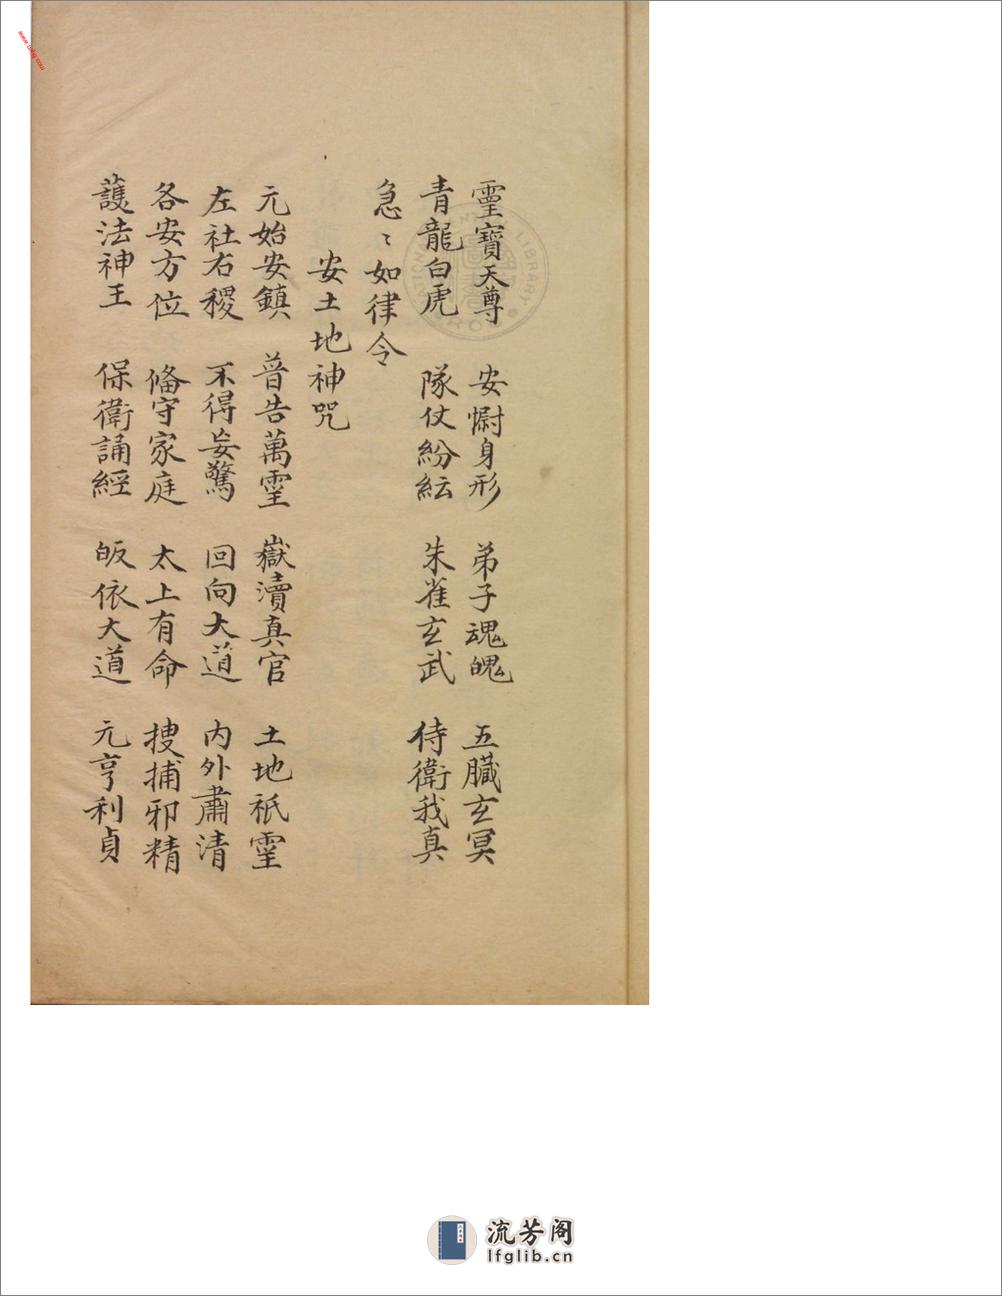 霊寶天尊 安慰身形 弟子魂魄 五臟玄冥
青龍白虎 隊仗紛紜 朱雀玄武 侍衛我真
急〻如律令
安土地神咒
元始安鎮 普告萬霊 嶽瀆真官 土地祇霊
左社右稷 不得妄驚 回向大道 内外肅清
各安方位 俻守家庭 太上有命 搜捕邪精
護法神王 保衛誦經 皈依大道 元亨利貞
流芳阁
lfglib.cn